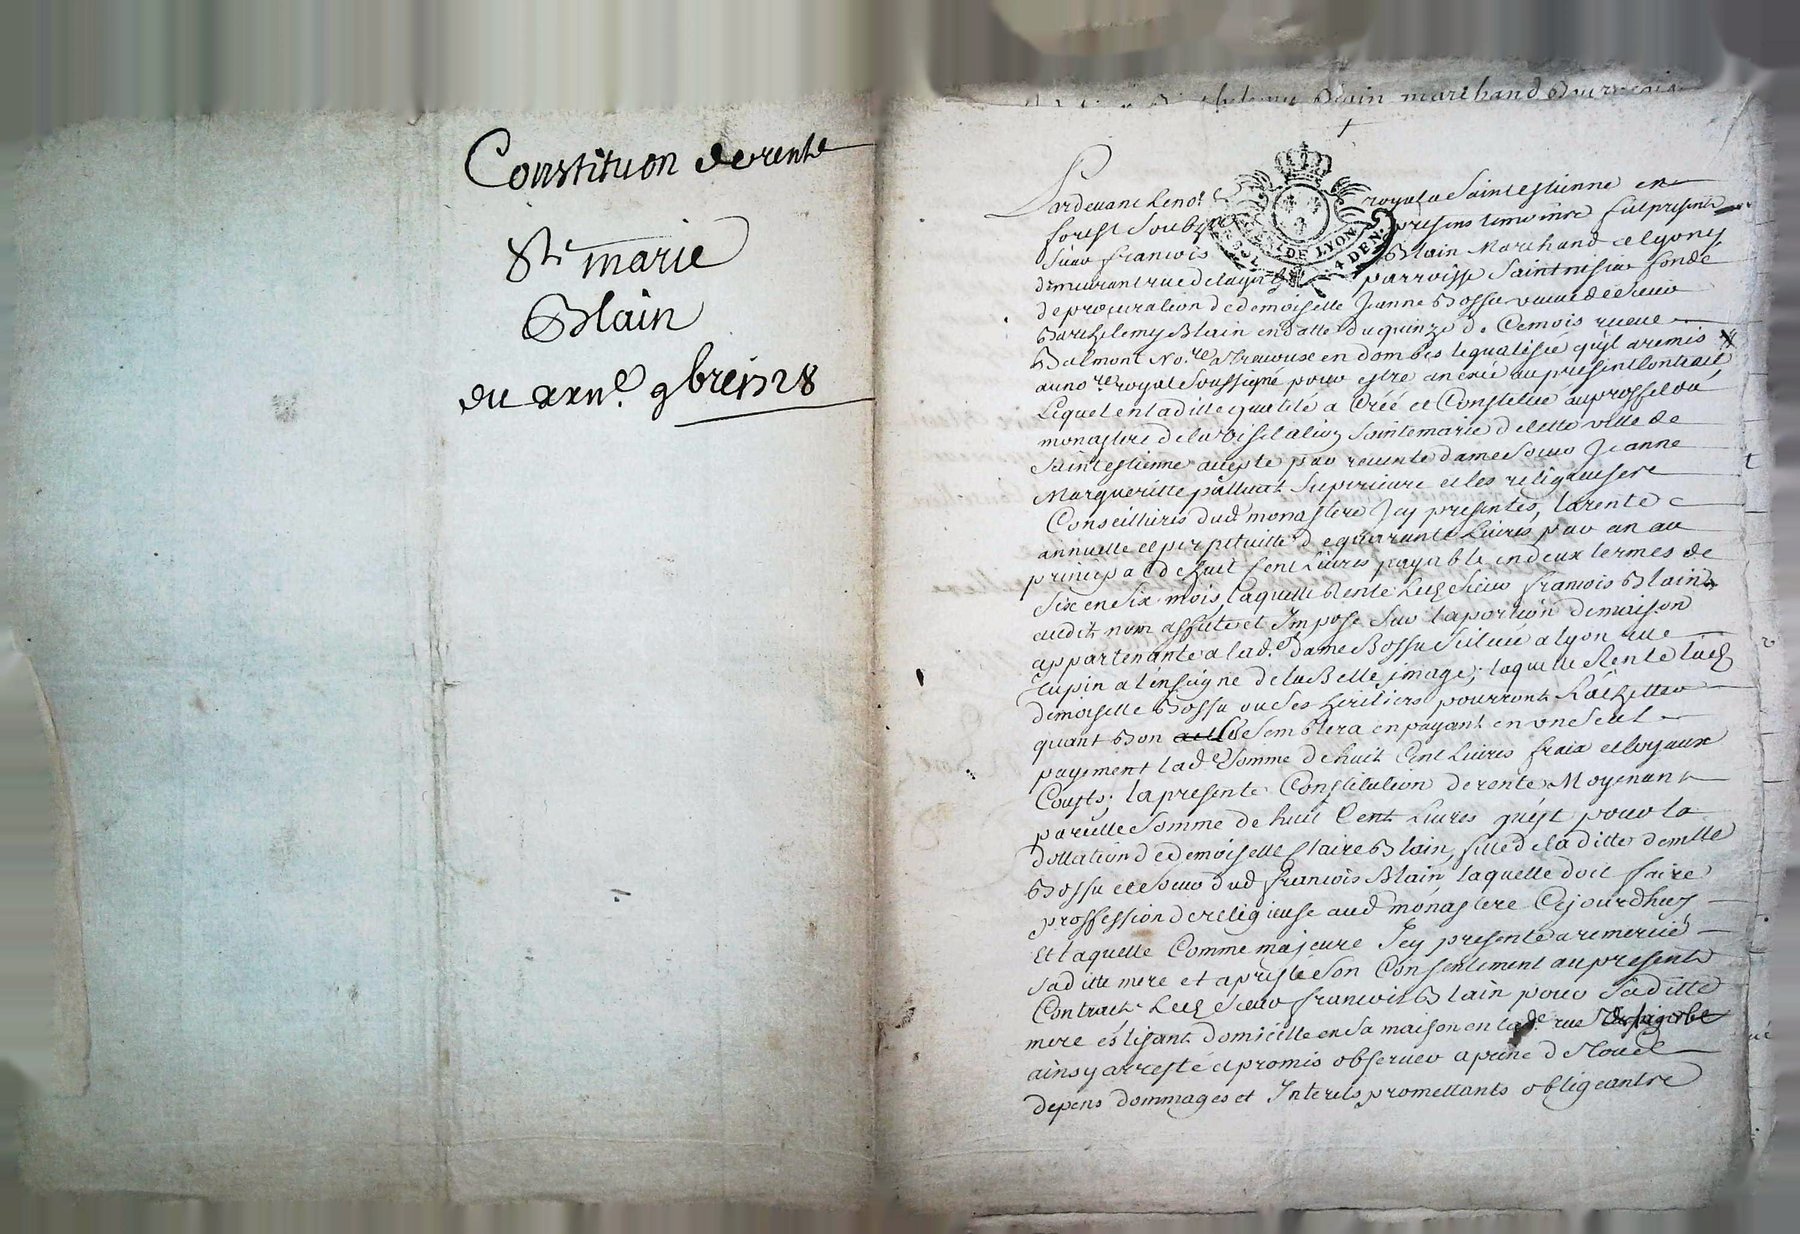 Constitution de rente
Ste marie
Blain
du xxıı.e 9bre 1728
Blain marchand Bourgeois
Pardevant le no.re royal a Saint estienne en
forest Soubz presens temoins fut present
Sieur francois Blain Marchand de lyon y
demeurant rue de parroisse Saint nisier fondé
de procuration de demoiselle Jeanne Bossu veuve de Sieur
Barthelemy Blain en datte du quinze de Ce mois receue
Balmont No.re a Trevoux en dombes lequalisée qu'il a remis
au no.re royal Soussigné pour estre anexée au present Contract
Lequel en laditte qualité a Créé et Constitué au proffit du
monastere de la Visitation Sainte marie de cette ville de
Saint estienne accepte par reverente dame Sœur Jeanne
Margueritte palluat Superieure et les religieuses
Conseillieres dud monastere Jcy presentes, la rente
annuelle et perpetuelle de quarante Livres par an au
principal de huit Cent Livres payable en deux termes de
Six en Six mois, laquelle Rente Led Sieur francois Blain
audit nom assitte et Impose Sur la portion de maison
appartenante a lad.e dame Bossu Scituée a lyon rue
tupin a l'enseigne de la Belle jmage; laquelle Rente lad
demoiselle Bossu ou Ses heritiers pourront Rachetter
quant Bon Semblera en payant en un Seul
payement lad.e Somme de huit Cent Livres frais et loyaux
Cousts; la presente Constitution de rente Moyenant
pareille Somme de huit Cent Livres qu'est pour la
dottation de demoiselle Claire Blain, fille de laditte demlle
Bossu et Sœur dud francois Blain laquelle doit faire
proffession de religieuse aud monastere Cejourdhuy
Et laquelle Comme majeure Jcy presente a remercié
Saditte mere et a presté Son Consentement au present
Contract. Led Sieur francois Blain pour Saditte
mere eslisant domicille en Sa maison en lad.e rue
ainsy arresté et promis observer a peine de tous
depens dommages et Interets promettants obligeants